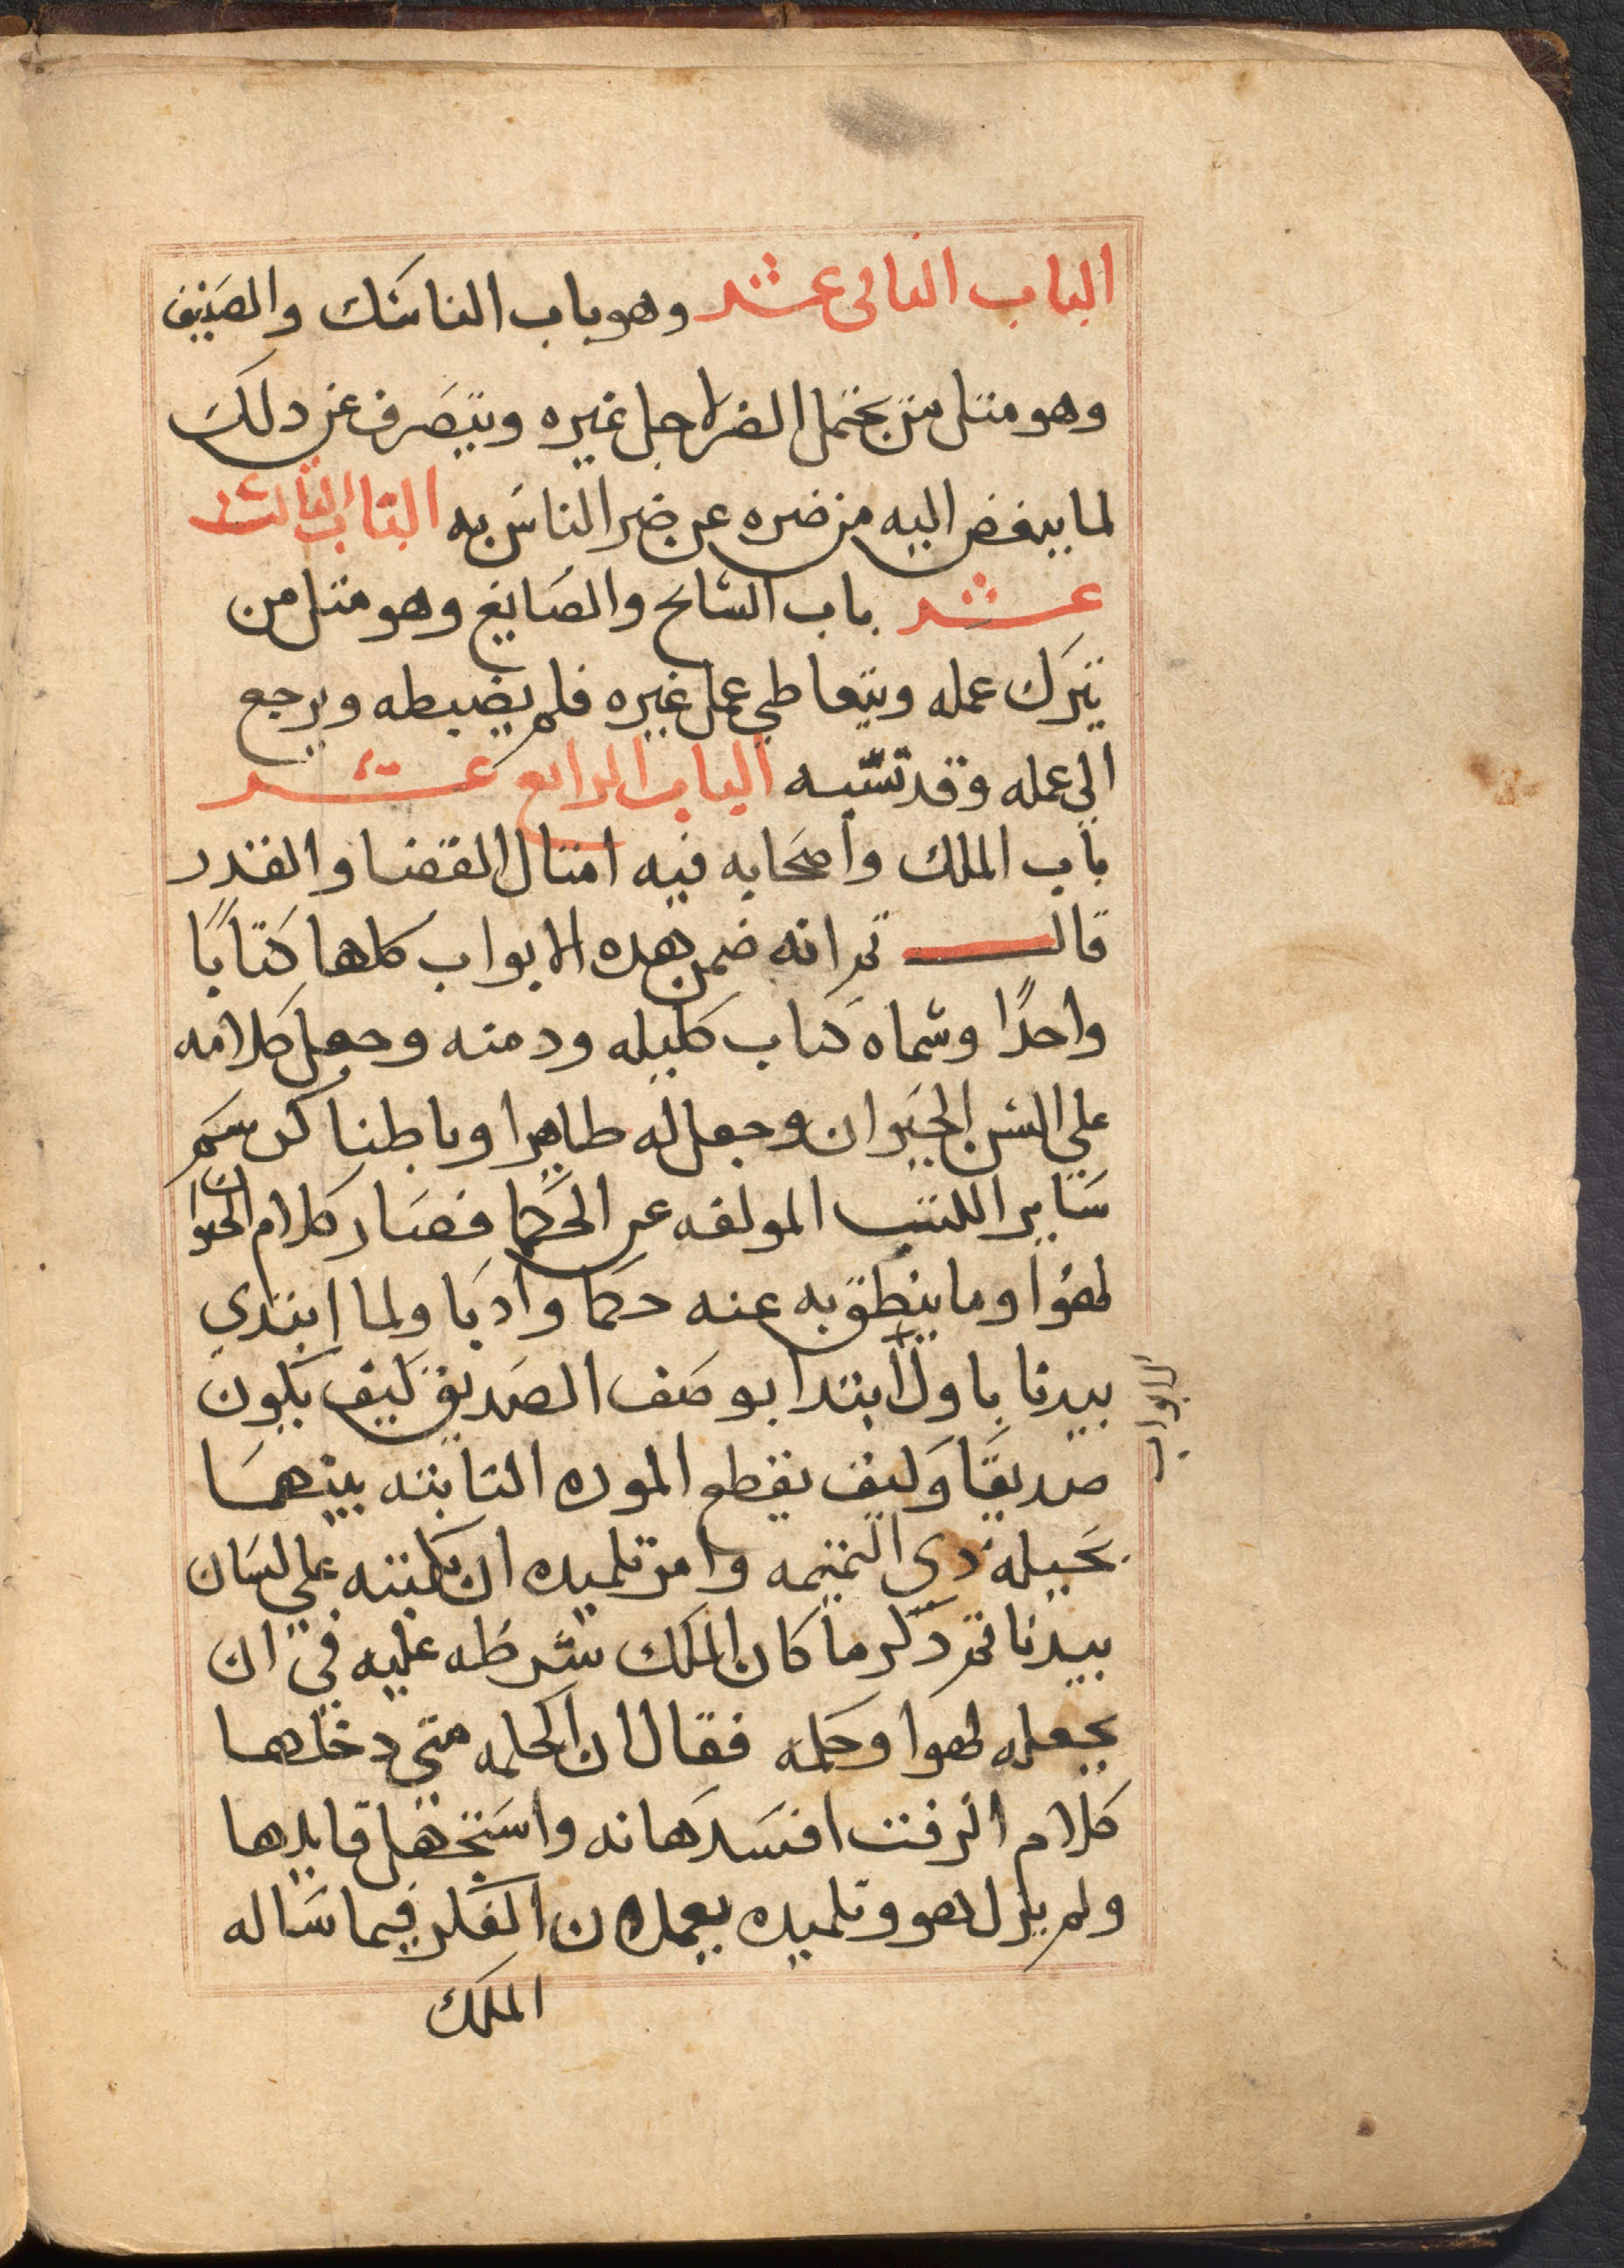 الباب الثانى عشر وهو باب الناسك والضيف
وهو مثل من يحتمل الضر لاجل غيره ويتصرف عن دلك
لما يبغض اليه من ضره عن ضر الناس به الباب الثالث
عشر باب السايح والصايغ وهو مثل من
يترك عمله ويتعاطي عمل غيره فلم يضبطه ويرجع
الي عمله وقد تشبه الباب الرابع عشر
باب الملك واصحابه فيه امثال القضا والقدر
قال ثم انه ضمن هده الابواب كلها كتابًا
واحدًا وسماه كتاب كليله ودمنه وجعل كلامه
علي السن الحيوان وجعل له ظاهرا وباطنا كرسم
ساير الكتب المولفه عن الحكما فصار كلام الحيوان
لهوا وما ينطق به عنه حكما وادبا ولما ابتدي
بيدبا باول ابتدا بوصف الصديق كيف يكون
الابواب
صديقا وكيف يقطع الموده الثابته بينهما
بحيله دي النميمه وامر تلميده ان يكتبه علي لسان
بيدبا ثم دكر ما كان الملك شرطه عليه في ان
يجعله لهوا وحكمه فقال ان الحكمه متي دخلها
كلام الرفت افسدها نه واستجهل قايلها
ولم يزل هو وتلميده يعملان الفكر فيما ساله
الملك